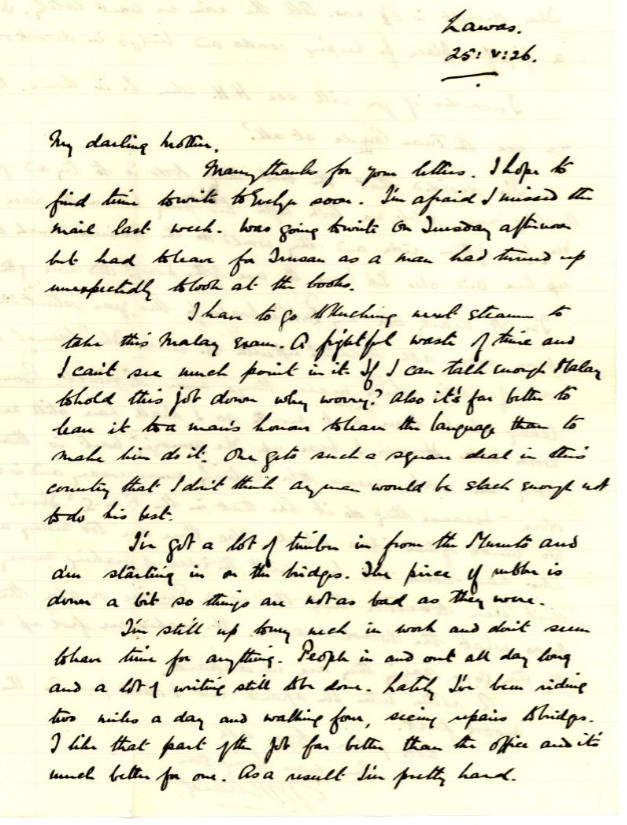 Lawas.
25: V: 26.
My darling Mother,
Many thanks for your letters. I hope to
find time to write to Evelyn soon. I'm afraid I missed the
mail last week. Was going to write on Tuesday afternoon
but had to leave for Trusan as a man had turned up
unexpectedly to look at the books.
I have to go to Kuching next steamer to
take this Malay exam. A frightful waste of time and
I can't see much point in it. If I can talk enough Malay
to hold this job down why worry? Also it's far better to
leave it to a man's honour to learn the language than to
make him do it. One gets such a square deal in this
country that I don't think any man would be slack enough not
to do his best.
I've got a lot of timber in from the Muruts and
am starting in on the bridges. The price of rubber is
down a bit so things are not as bad as they were.
I'm still up to my neck in work and don't seem
to have time for anything. People in and out all day long
and a lot of writing still to be done. Lately I've been riding
two miles a day and walking four, seeing repairs to bridges.
I like that part of the job far better than the office and it's
much better for one. As a result I'm pretty hard.